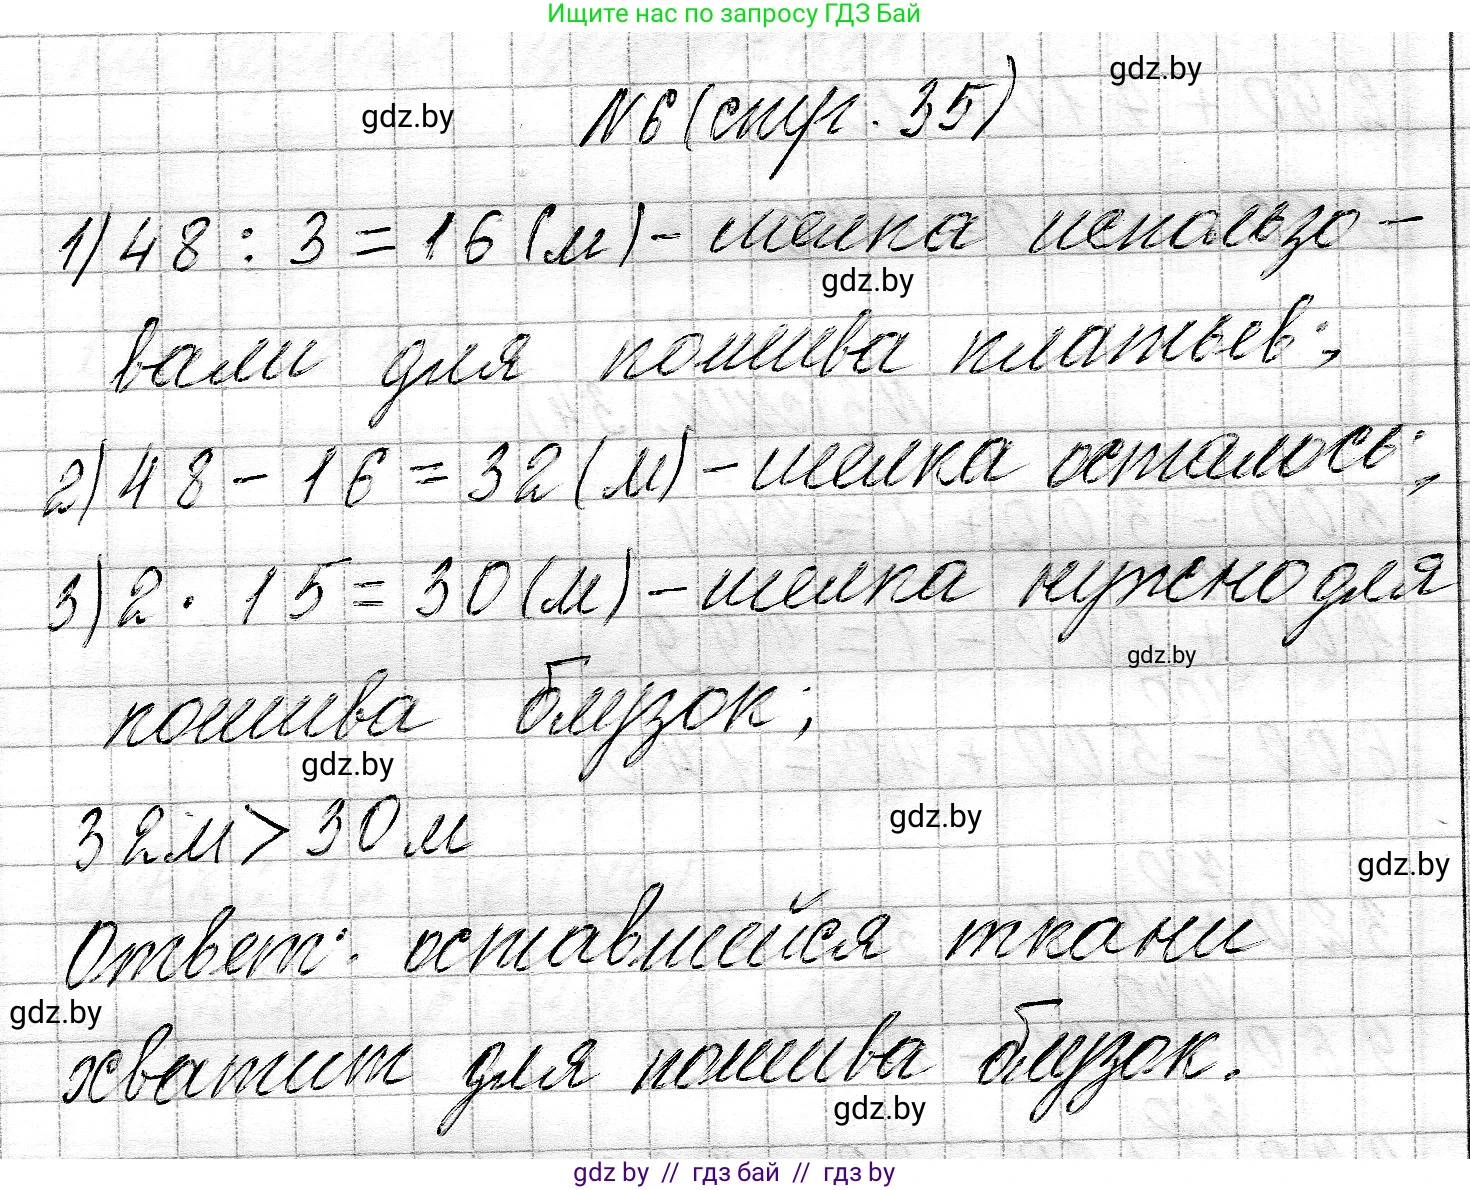 Ищите нас по запросу ГДЗ Бай
gdz.by
gdz.by
№6 (стр. 35)
1) 48 : 3 = 16 (м) - шелка использо -
gdz.by
вали для пошива платьев;
2) 48 - 16 = 32 (м) - шелка осталось;
3) 2 · 15 = 30 (м) - шелка нужно для
gdz.by
пошива блузок;
gdz.by
32 м > 30 м
gdz.by
gdz.by
Ответ: оставшейся ткани
gdz.by
хватит для пошива блузок.
gdz.by
gdz by // гдз бай // гдз by